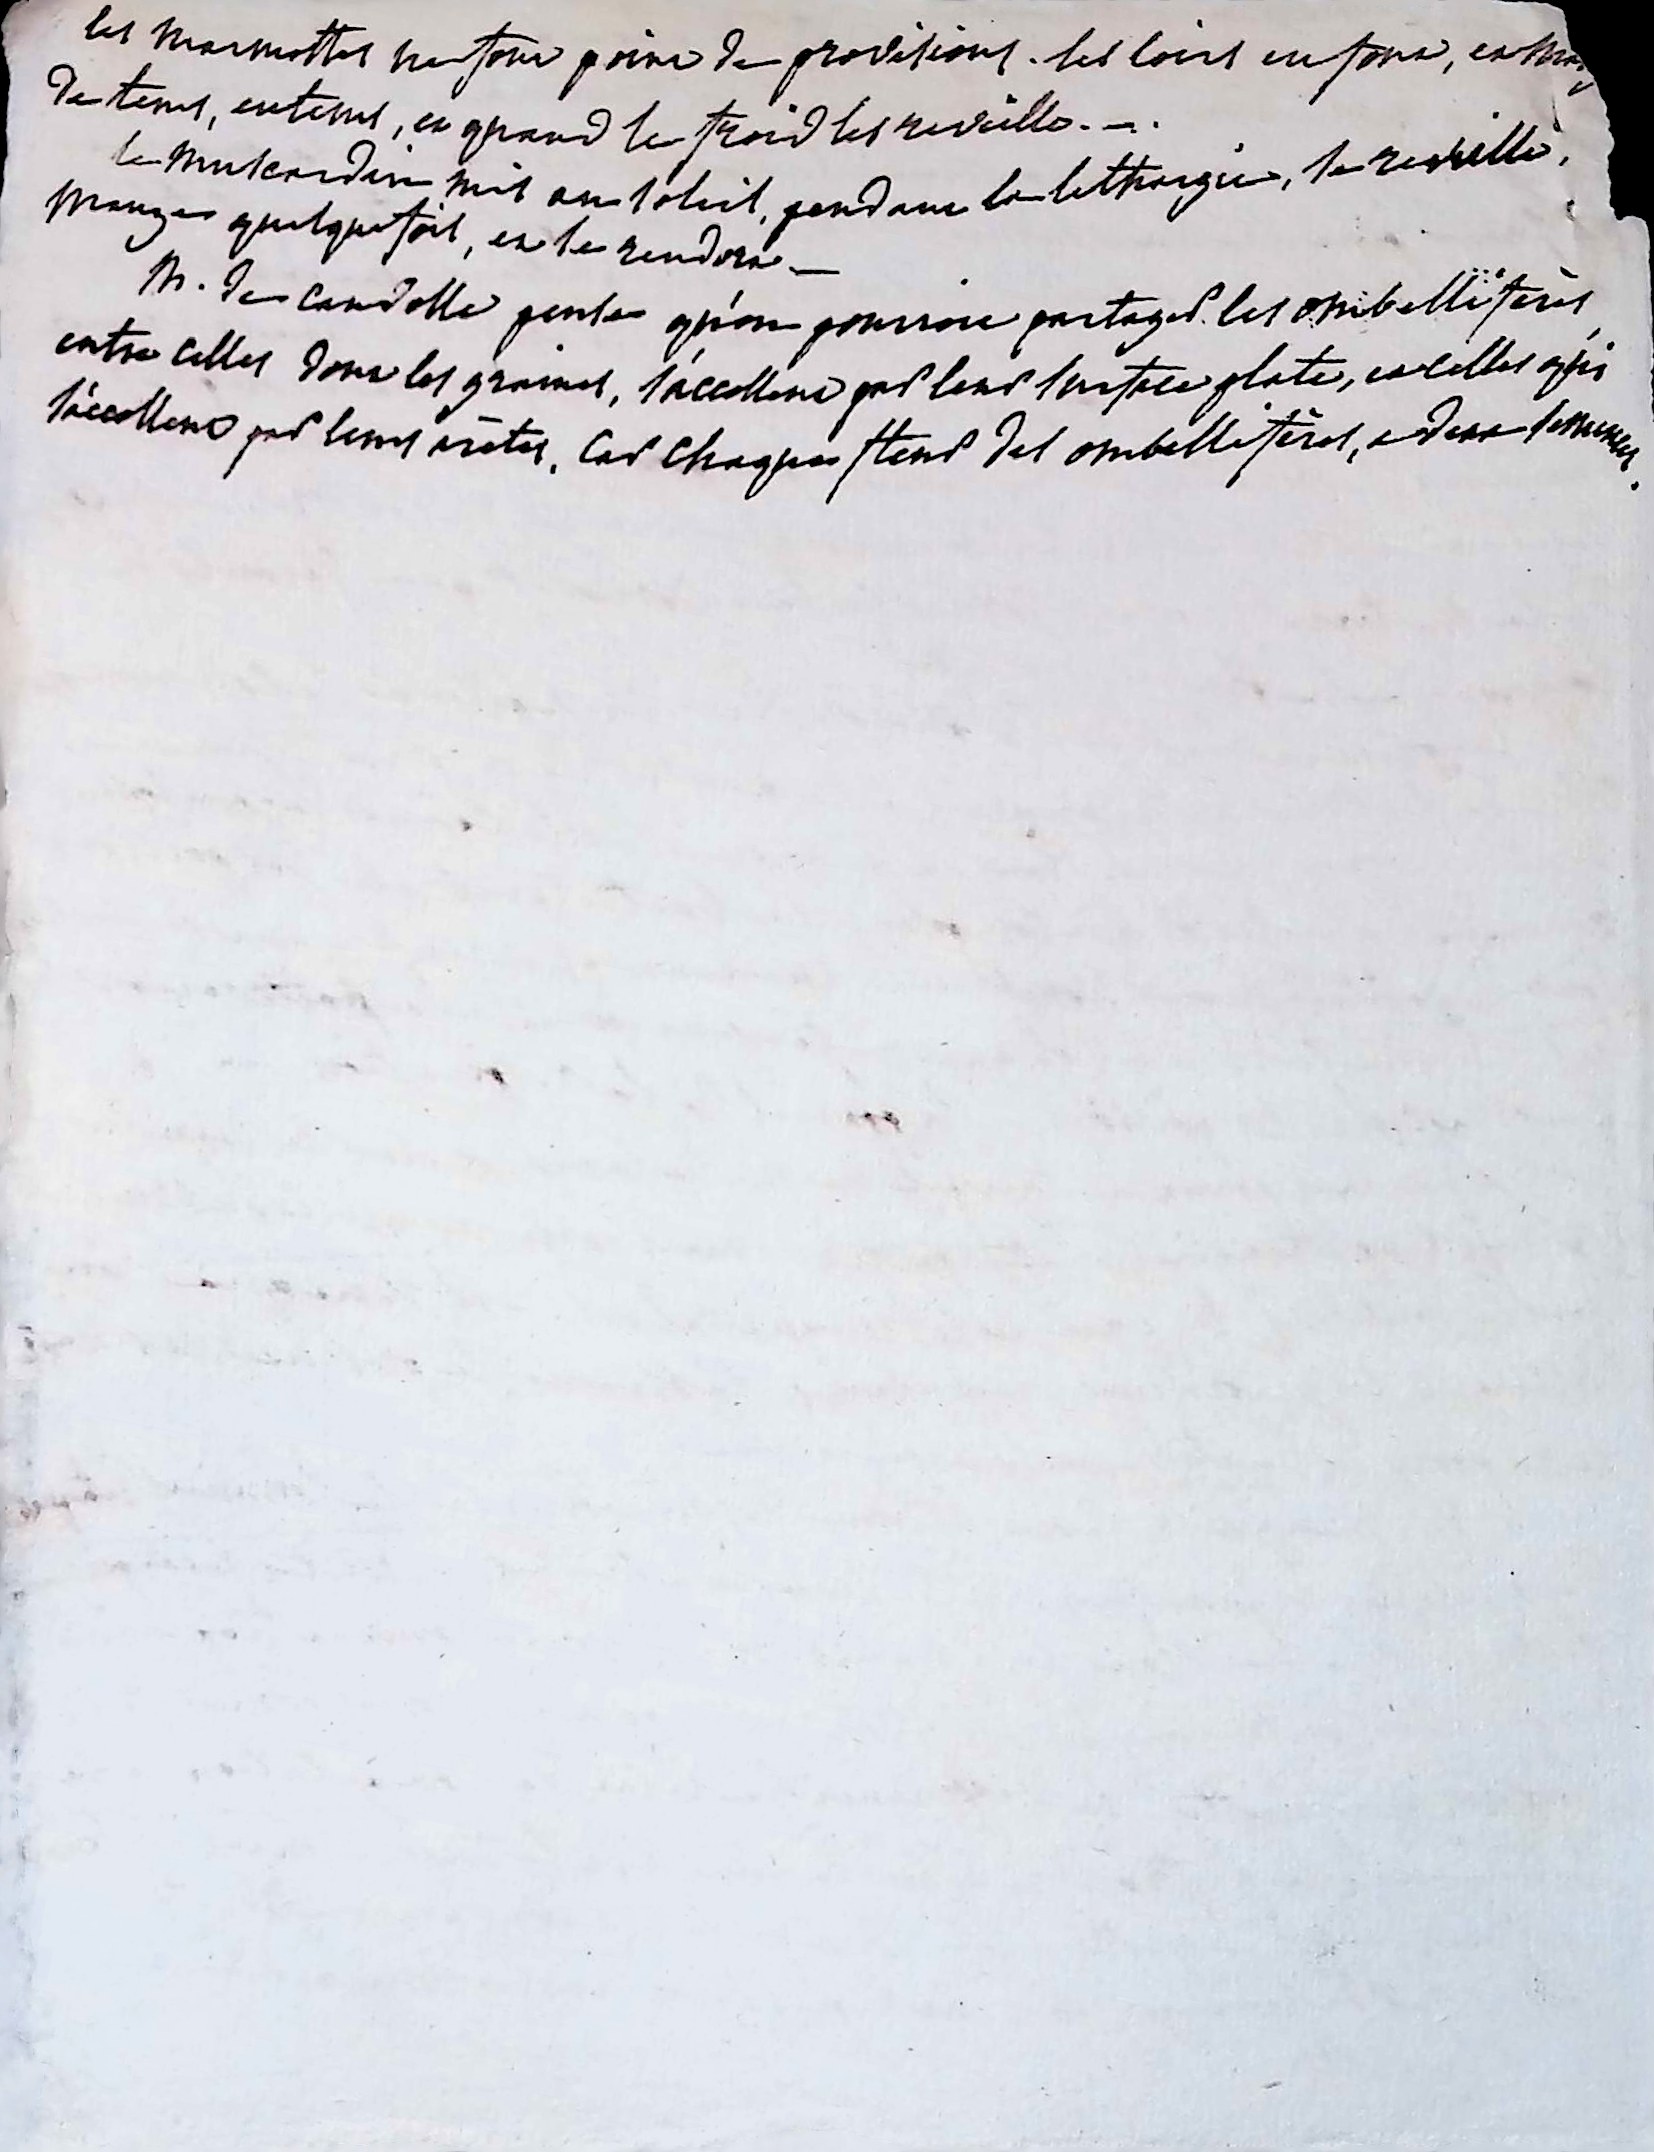 les marmottes ne font point de provisions. les loirs en font, et
de tems, en tems, et quand le froid les reveille. —.
le muscardin mis au soleil, pendant la lethargie, se reveille,
mange quelquefois, et se rendort —
M. de candolle pense qu'on pourroit partager les ombellifères,
entre celles dont les graines, s'accollent par leur surface plate, et celles qui
s'accollent par leurs arêtes, car chaque fleur des ombellifères, a deux semences.